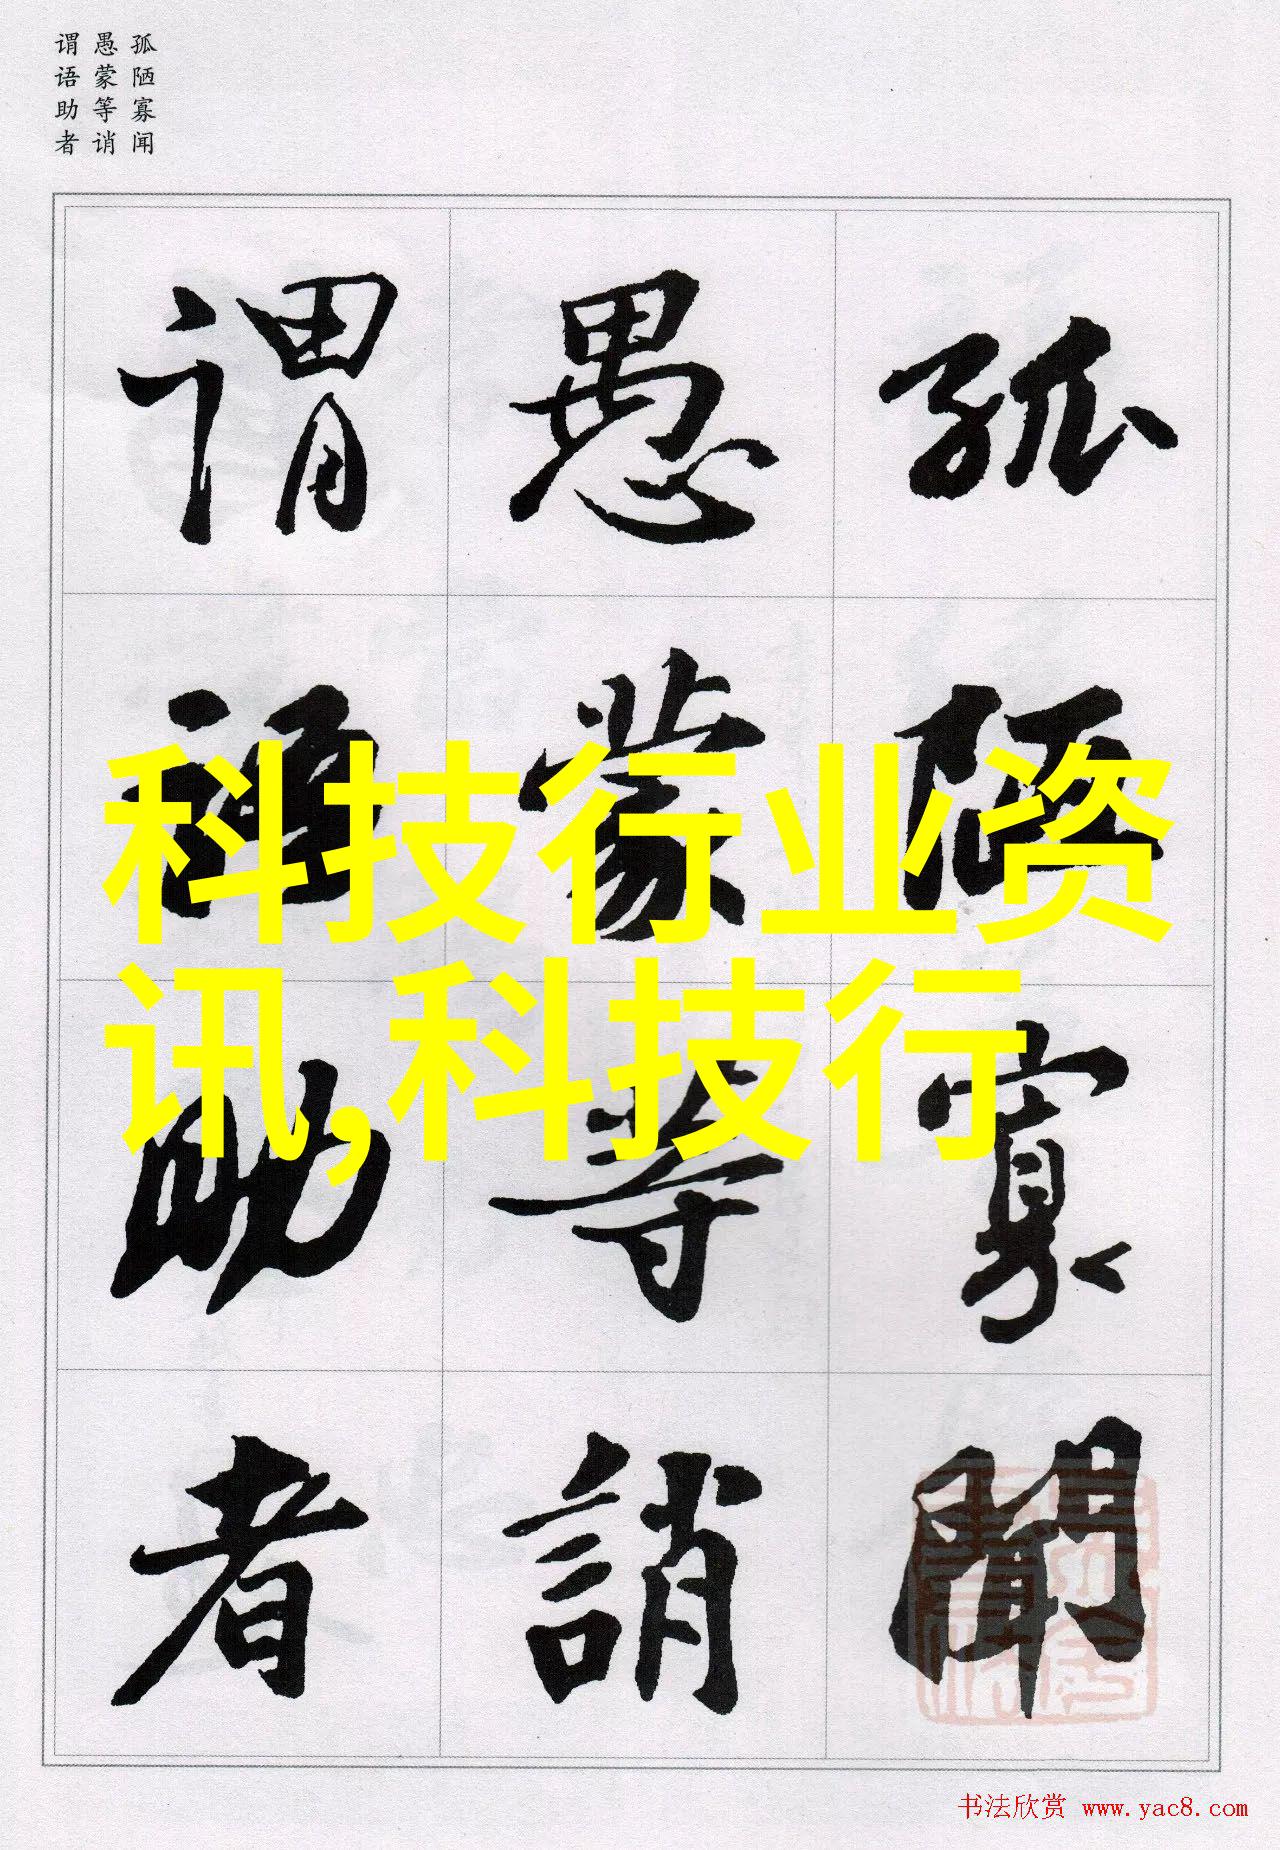 孤陋寡闻
愚蒙等诮
谓语助者
孤陋寡聞
愚蒙等誚
谓語助者
科技行业资
讯,科技行
书法欣赏 www.yac8.com